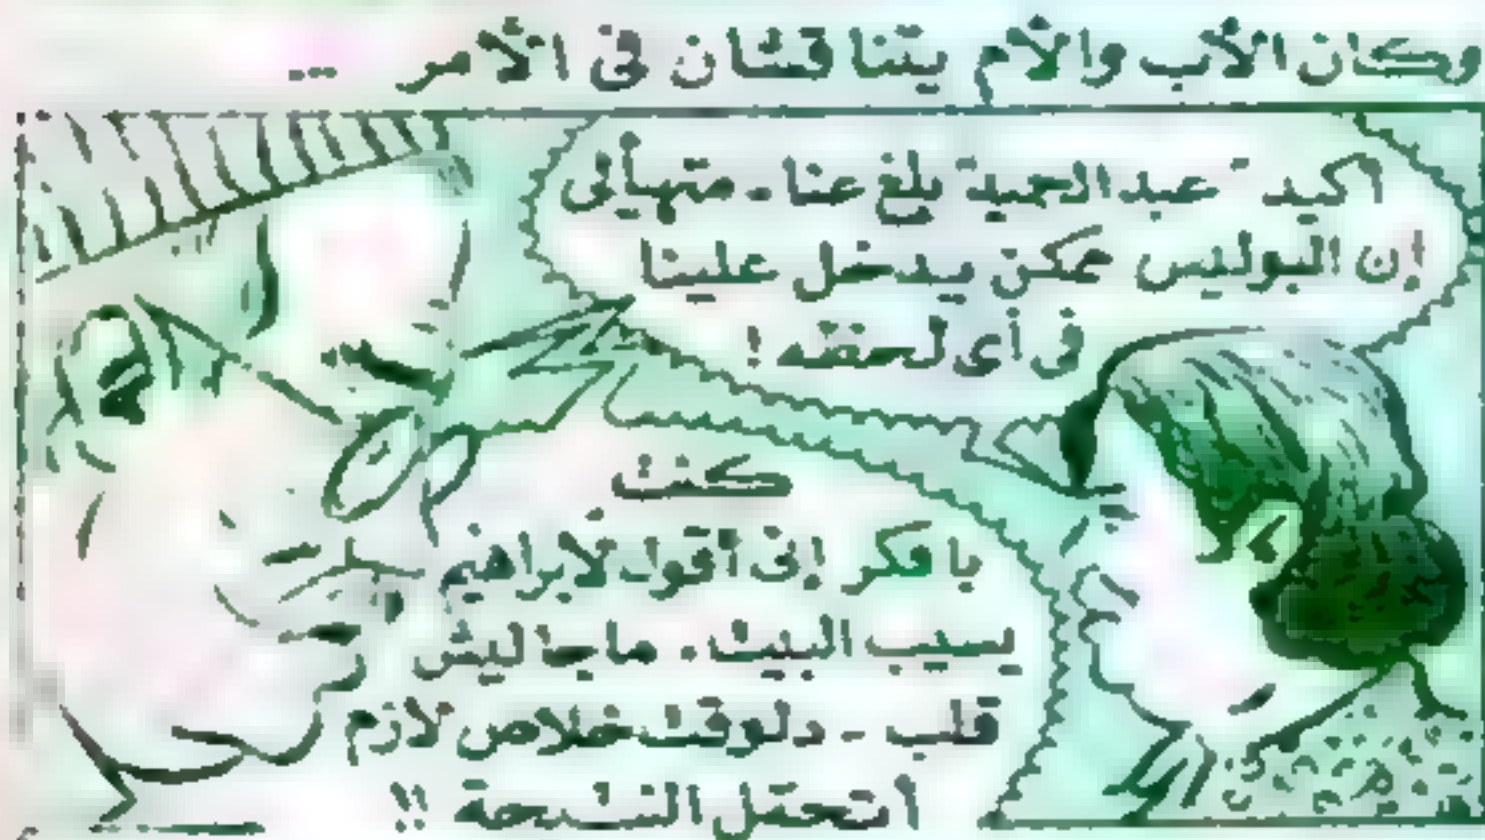 وكان الأب والأم يتناقشان فى الأمر ...
اكيد "عبد الحميد" بلغ عنا - متهيألى
إن البوليس ممكن يدخل علينا
فى أى لحظه !
كنت
بافكر إنى أقول لابراهيم
يسيب البيت . ماجاليش
قلب - دلوقت خلاص لازم
أتحمل النتيجة !!